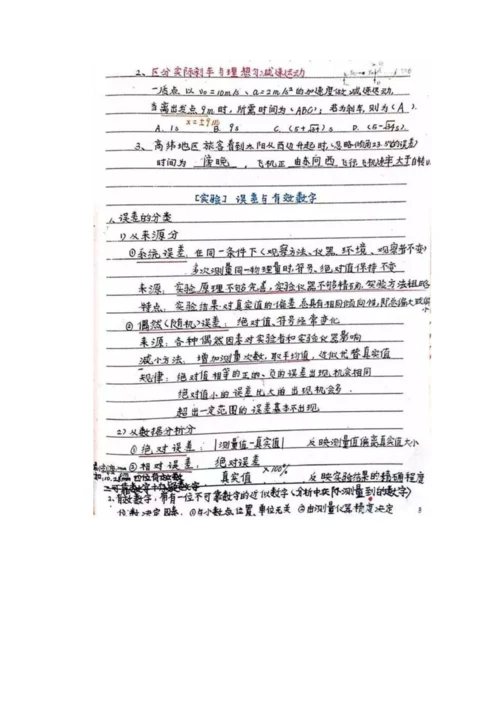 2、区分实际刹车与理想匀减速运动
一质点以v₀=10m/s、a=2m/s²的加速度做减速运动,
当离出发点9m时,所需时间为(ABC);若为刹车,则为(A).
x=±9m
A.1s B.9s C.(5+√34)s D.(5-√34)s
3、高纬地区旅客看到太阳从西边升起时,(忽略
时间为 傍晚 ,飞机正 由东向西 飞行,飞机速率大于自转
[实验] 误差与有效数字
1、误差的分类
1)从来源分
①系统误差:在同一条件下(观察方法、仪器、环境、观察者不变)
多次测量同一物理量时,符号、绝对值保持不变
来源:实验原理不够完善,实验仪器不够精确,实验方法粗略
特点:实验结果对真实值的偏差总具有相同倾向性,即总偏大或偏小
②偶然(随机)误差:绝对值、符号经常变化
来源:各种偶然因素对实验者和实验仪器影响
减小方法:增加测量次数,取平均值,近似代替真实值
规律:绝对值相等的正的、负的误差出现机会相同
绝对值小的误差比大的出现机会多.
超出一定范围的误差基本不出现.
2)从数据分析分
①绝对误差:|测量值-真实值| 反映测量值偏离真实值大小
②相对误差:绝对误差/真实值×100%
反映实验结果的精确程度
四位有效数
2、有效数字:带有一位不可靠数字的近似数字(分析中实际测量到的数字)
决定因素:①与小数点位置、单位无关 ②由测量仪器精度决定